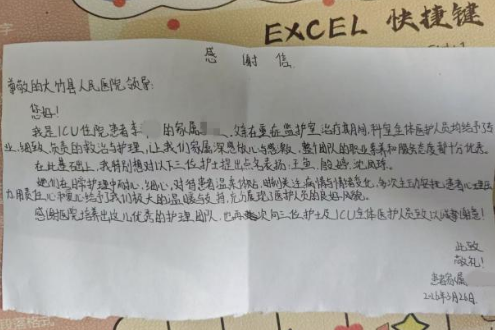 EXCEL 快捷键
感谢信
尊敬的大竹县人民医院领导:
您好!
我是ICU住院患者李 的家属 ,住在重症监护室治疗期间,科室全体医护人员均给予
业、细致、负责的救治与护理,让我们家属深感放心与感激,整个团队的职业素养和服务态度都十分优秀。
在此基础上,我特别想对以下三位护士提出点名表扬:王鱼、殷婷、
她们在日常护理中耐心、细心,对待患者温柔体贴,时刻关注病情与情绪变化,多次主动安抚患者心理压
力,用责任心护理心给了我们极大的温暖与支持,充分展现了医护人员的良好风貌。
感谢医院培养出这儿优秀的护理团队,也再次向三位护士及ICU全体医护人员致以诚挚谢意!
此致
敬礼!
患者家属
2026年3月26日